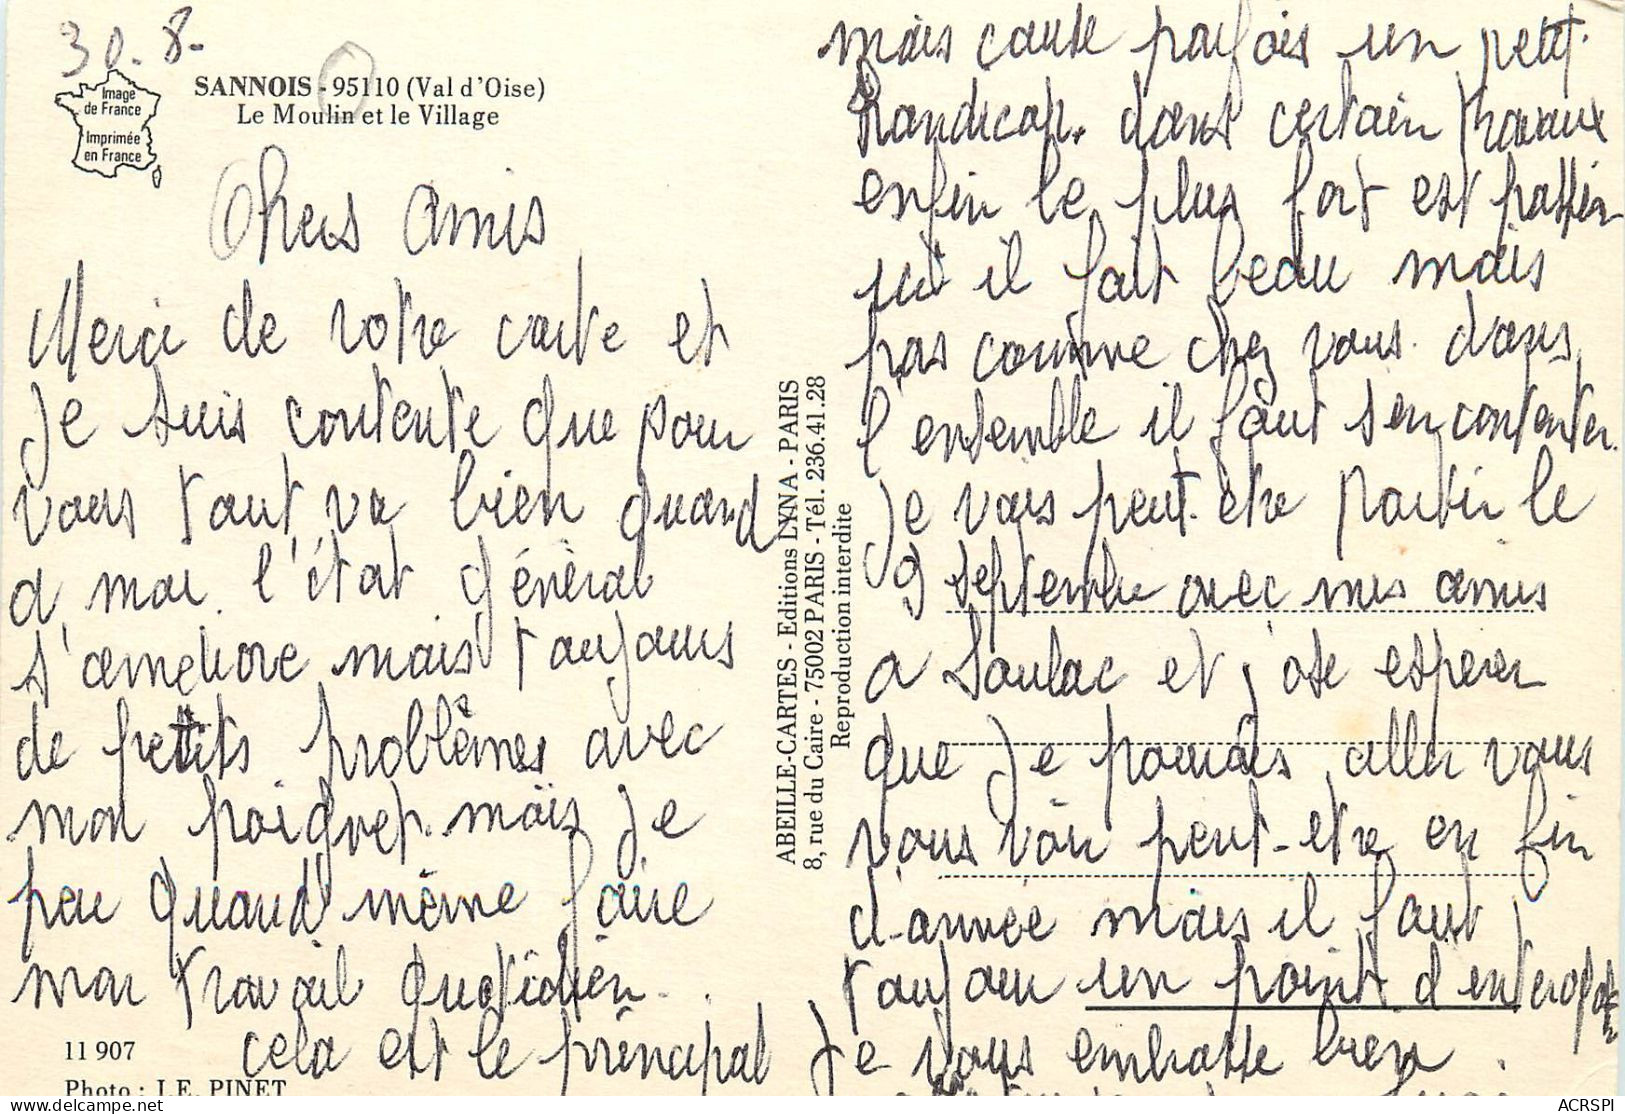 30.8-
Image
de France
Imprimée
en France
SANNOIS - 95110 (Val d'Oise)
Le Moulin et le Village
Chers amis
Merci de votre carte et
je suis contente que pour
vous tout va bien quand
a moi l'état général
s'améliore mais toujours
de petits problèmes avec
mon poignet mais je
peu quand même faire
mon travail quotidien
cela est le principal
11 907
Photo : J.E. PINET
ABEILLE-CARTES - Editions LYNA - PARIS
8, rue du Caire - 75002 PARIS - Tél. 236.41.28
Reproduction interdite
mais cause parfois un petit
handicap. dans certain travaux
enfin le plus fort est passer
ici il fait beau mais
pas comme chez vous. dans
l'ensemble il faut s'en contenter
je vais peut-etre partir le
9 septembre avec mes amis
a Soulac et j'ose esperer
que je pourais aller vous
vous voir peut-etre en fin
d'année mais il faut
toujour un point d'enterogation
je vous embrasse bien
ACRSPI